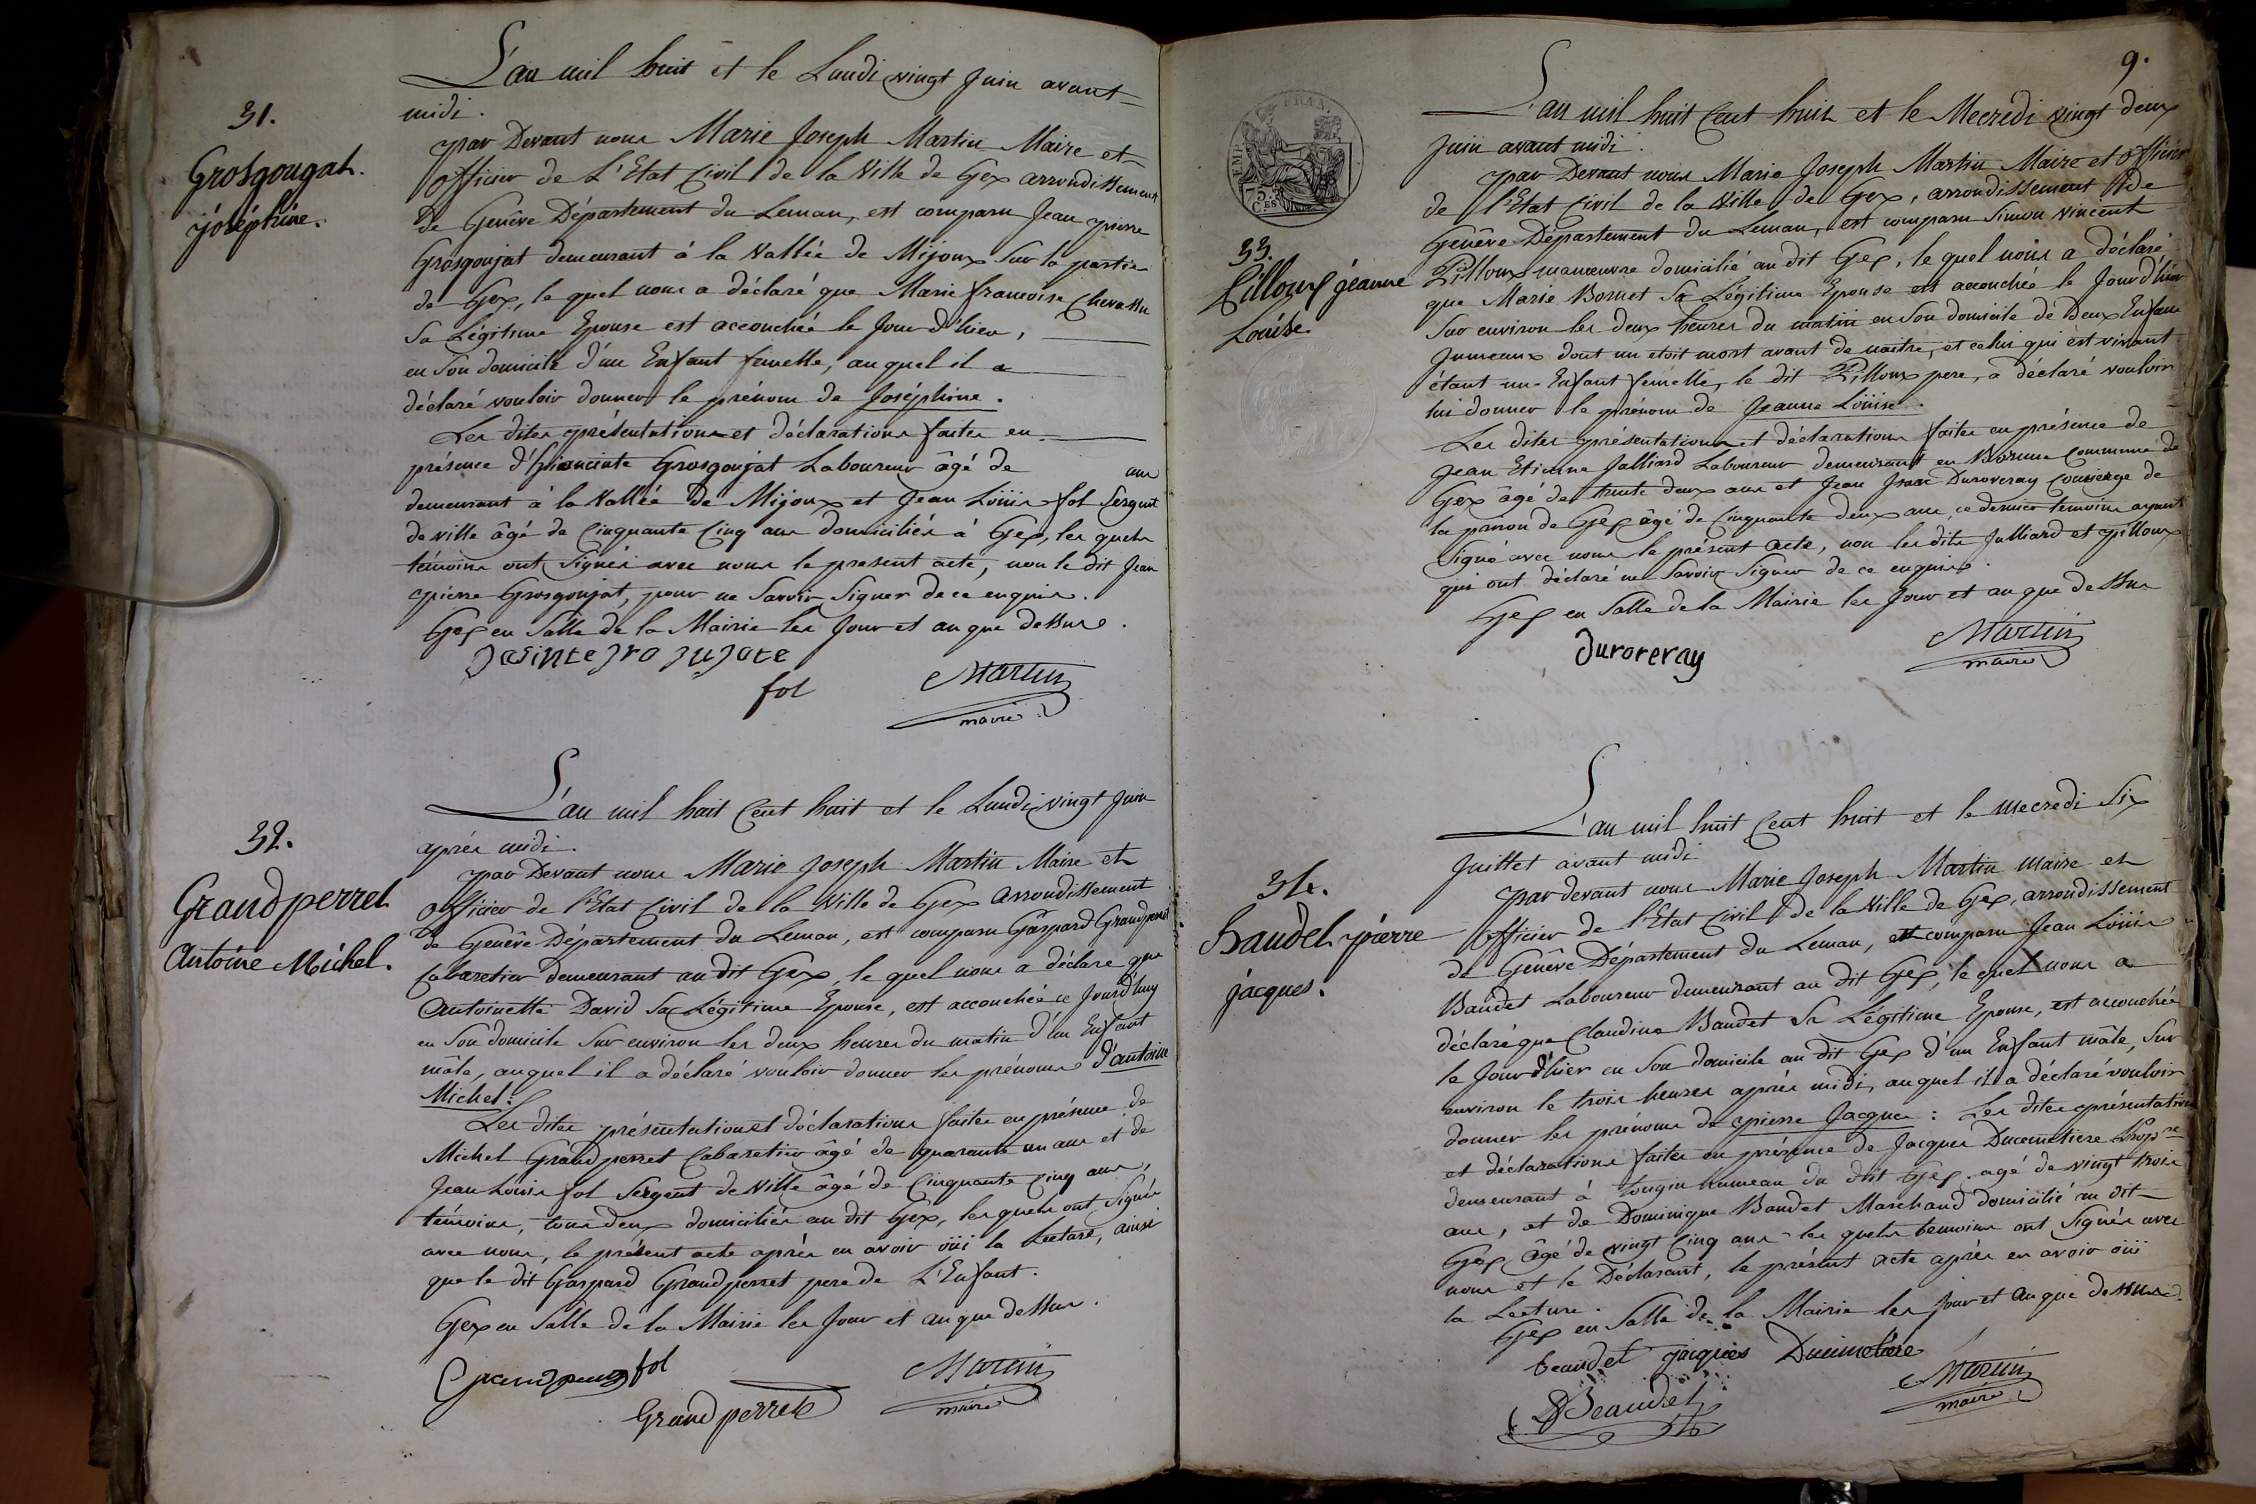 L'an mil huit et le Lundi vingt Juin avant=
midi.
31.
Grosgougat.
joséphine.
par Devant nous Marie Joseph Martin Maire et
officier de L'Etat Civil de la Ville de Gex arrondissement
de Genêve Département du Leman, est comparu Jean pierre
Grosgoujat demeurant à la Vallée de Mijoux sur la partie
de Gex, le quel nous a déclaré que Marie francoise Chevassu
Sa Légitime Epouse est accouchée le Jour d'hier,
en Son domicile d'un Enfant femelle, au quel il a
déclaré vouloir donner le prénom de Joséphine.
Les dites présentations et déclarations faites en
présence d'hiancinte Grosgoujat Laboureur âgé de ans
demeurant à la Vallée de Mijoux et Jean Loüis fol Sergent
de ville âgé de Cinquante Cinq ans domiciliés à Gex, les quels
témoins ont Signés avec nous le present acte, non le dit Jean
pierre Grosgoujat, pour ne Savoir Signer de ce enquis.
Gex en Salle de la Mairie les Jour et an que dessus.
Jasinte gro gujate
fol
Martin
maire
L'an mil huit Cent huit et le Lundi vingt Juin
après midi.
32.
Grandperret
Antoine Michel.
par Devant nous Marie Joseph Martin Maire et
officier de l'Etat Civil de la Ville de Gex arrondissement
de Genêve Département du Leman, est comparu Gaspard Grandperret
Cabaretier demeurant au dit Gex, le quel nous a déclaré que
Antoinette David Sa Légitime Epouse, est accouchée ce Jourd'huy
en Son domicile Sur environ les deux heures du matin d'un Enfant
mâle, auquel il a déclaré vouloir donner les prénoms d'antoine
Michel.
Les dites présentations et déclarations faites en présence de
Michel Grandperret Cabaretier âgé de quarante un ans et de
Jean Louis fol Sergent de Ville âgé de Cinquante Cinq ans,
témoins, tous deux domiciliés au dit Gex, les quels ont Signés
avec nous, le présent acte après en avoir oüi la Lecture, ainsi
que le dit Gaspard Grandperret pere de L'Enfant.
Gex en Salle de la Mairie les Jour et an que dessus.
fol
Grandperret
Martin
maire
9.
EMP. FRAN.
75 CES
L'an mil huit Cent huit et le Mecredi vingt deux
Juin avant midi.
33.
Pilloux jeanne
Louise.
par Devant nous Marie Joseph Martin Maire et officier
de l'Etat Civil de la Ville de Gex, arrondissement de
Genêve Département du Leman, est comparu Simon Vincent
Pilloux manoeuvre domicilié au dit Gex, le quel nous a déclaré
que Marie Bornet Sa Légitime Epouse est accouchée le Jour d'hier
Sur environ les deux heures du matin en Son domicile de deux Enfans
Jumeaux dont un etoit mort avant de naitre, et celui qui est vivant
étant un Enfant femelle, le dit Pilloux pere, a déclaré vouloir
lui donner le prénom de Jeanne Loüise.
Les dites présentations et déclarations faites en présence de
Jean Etienne Julliard Laboureur demeurant en Commune de
Gex âgé de trente deux ans et Jean Isaac Duroveray Concierge de
la prison de Gex âgé de Cinquante deux ans, ce dernier témoins ayant
Signé avec nous le présent acte, non les dits Julliard et pilloux
qui ont déclaré ne Savoir Signer de ce enquis.
Gex en Salle de la Mairie les Jour et an que dessus
Duroveray
Martin
maire
L'an mil huit Cent huit et le mecredi Six
Juillet avant midi
34.
Baudet pierre
jacques.
par devant nous Marie Joseph Martin maire et
officier de l'Etat Civil de la Ville de Gex, arrondissement
de Genêve Département du Leman, est comparu Jean Loüis
Baudet Laboureur demeurant au dit Gex, le quel nous a
déclaré que Claudine Baudet Sa Légitime Epouse, est accouchée
le Jour d'hier en Son domicile au dit Gex d'un Enfant mâle, Sur
environ le trois heures après midi, auquel il a déclaré vouloir
donner les prénoms de pierre Jacques: Les dites présentations
et déclarations faites en présence de Jacques Ducimetiere Prop.re
demeurant à Tougin hameau du dit Gex. agé de vingt trois
ans, et de Dominique Baudet Marchand domicilié au dit
Gex âgé de vingt Cinq ans les quels temoins ont Signés avec
nous et le Déclarant, le présent acte après en avoir oüi
la Lecture.
Gex en Salle de la Mairie les Jour et an que dessus
beaudet jacques Ducimetiere
D Beaudet
Martin
maire